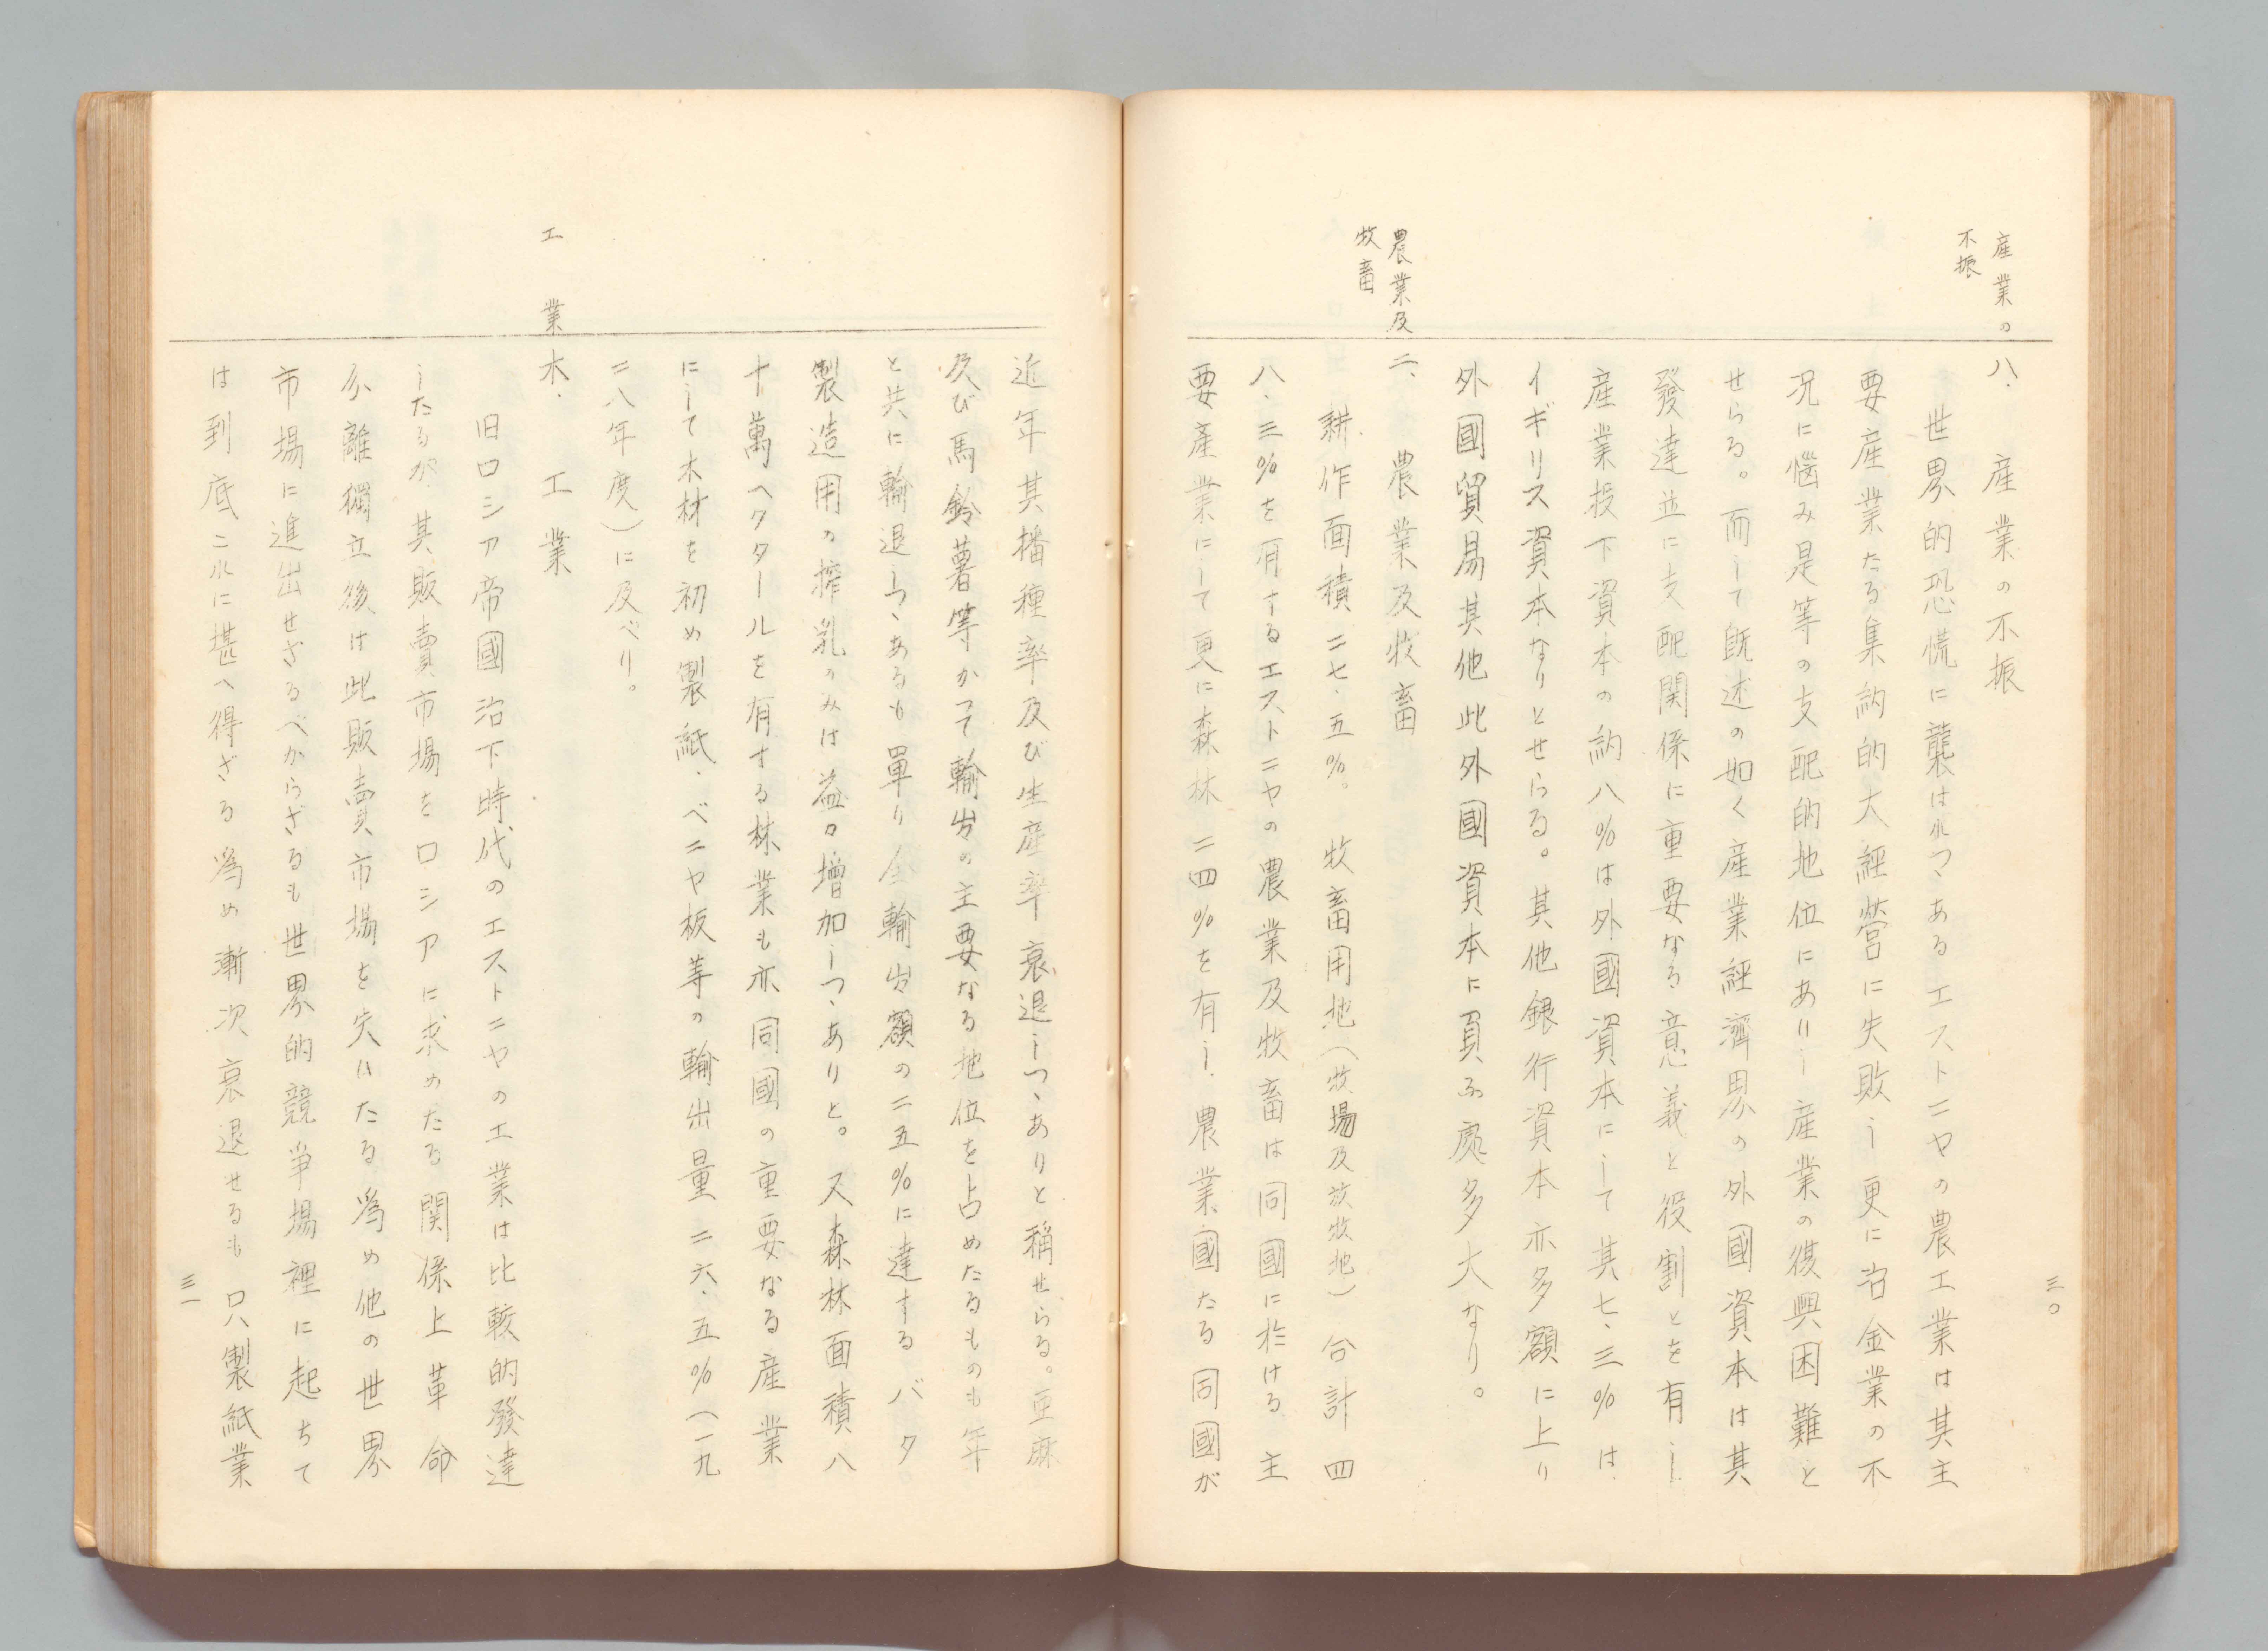 三〇
産業の
不振
ハ. 産業の不振
世界的恐慌に襲はれつゝあるエストニヤの農工業は其主
要産業たる集約的大経営に失敗し更に冶金業の不
況に悩み是等の支配的地位にありし産業の復興困難と
せらる。而して既述の如く産業経濟界の外國資本は其
發達並に支配関係に重要なる意義と役割とを有し
産業投下資本の約八%は外國資本にして其七.三%は
イギリス資本なりとせらる。其他銀行資本亦多額に上り
外國貿易其他此外國資本に負ふ處多大なり。
農業及
牧畜
ニ、 農業及牧畜
耕作面積二七.五%。 牧畜用地(牧場及放牧地)合計四
八.三%を有するエストニヤの農業及牧畜は同國に於ける主
要産業にして更に森林二四%を有し.農業國たる同國が
近年其播種率及び生産率衰退しつゝありと稱せらる。亜麻
及び馬鈴薯等かつて輸出の主要なる地位を占めたるものも年
と共に輸退しつゝあるも単り全輸出額の二五%に達するバタ
製造用の搾乳のみは益々増加しつゝありと。又森林面積八
十萬ヘクタールを有する林業も亦同國の重要なる産業
にして木材を初め製紙.ベニヤ板等の輸出量二六.五%(一九
二八年度)に及べり。
工業
ホ. 工業
旧ロシア帝國治下時代のエストニヤの工業は比較的發達
したるが.其販賣市場をロシアに求めたる関係上革命
分離獨立後は此販賣市場を失ひたる為め他の世界
市場に進出せざるべからざるも世界的競爭場裡に起ちて
は到底これに堪へ得ざる為め漸次衰退せるも只製紙業
三一